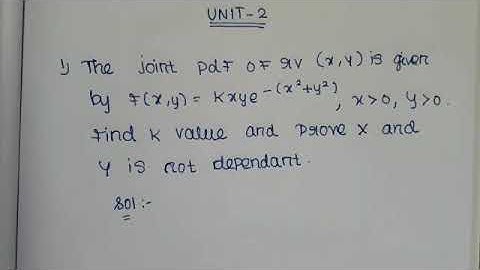 UNIT-2
1) The joint pdF OF rv (x,y) is given
by F(x,y) = kxye^-(x²+y²), x>0, y>0.
Find k value and prove x and
y is not dependant.
Sol:-